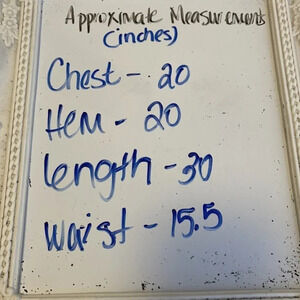 Approximate Measurements
(inches)
Chest - 20
Hem - 20
length - 30
waist - 15.5